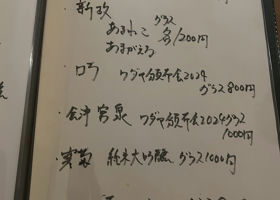 ・新政 グラス
あまねこ 各1200円
あまがえる
・ロ万 ワダヤ頒布会2024
グラス800円
・会津宮泉 ワダヤ頒布会2024グラス
1000円
・寫樂 純米大吟醸 グラス1000円